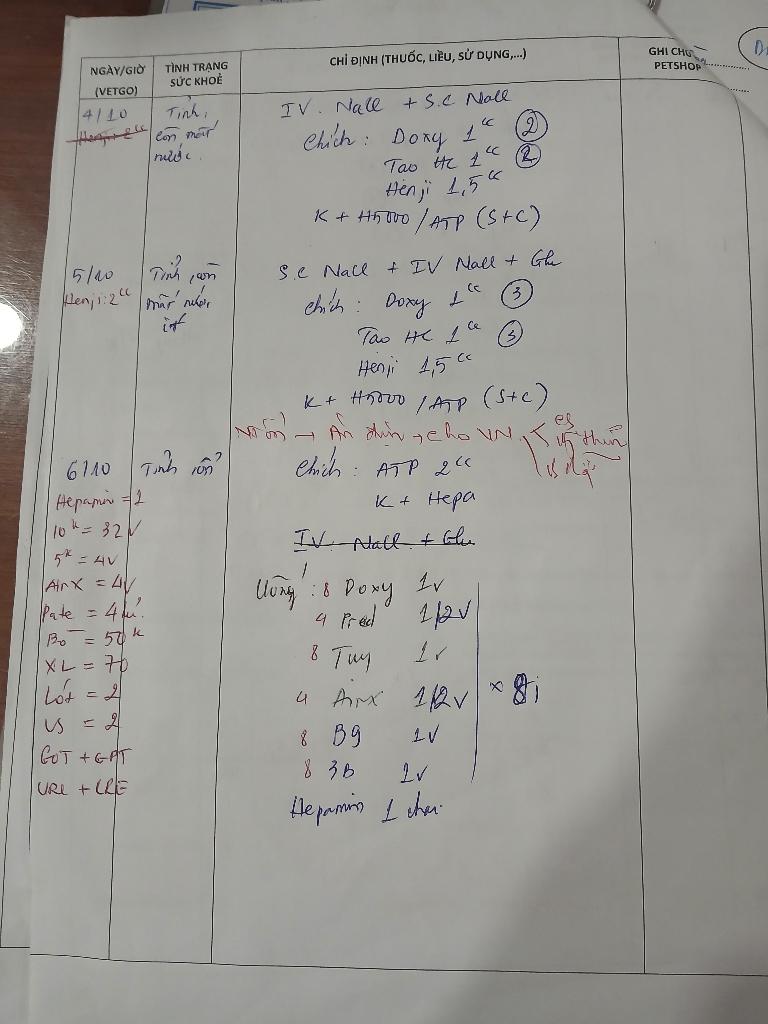 NGÀY/GIỜ (VETGO)
TÌNH TRẠNG SỨC KHOẺ
CHỈ ĐỊNH (THUỐC, LIỀU, SỬ DỤNG,...)
GHI CHÚ PETSHOP
4/10
Henji: 2cc
Tỉnh, còn mất nước.
IV. Nacl + S.C Nacl
Chích: Doxy 1cc (2)
Tao HC 1cc (2)
Henji 1,5cc
K + H5000 / ATP (S+C)
5/10
Henji: 2cc
Tỉnh, còn mất nước ít
S.C Nacl + IV Nacl + Glu
Chích: Doxy 1cc (3)
Tao HC 1cc (3)
Henji 1,5cc
K + H5000 / ATP (S+C)
→ Ăn → cho VN
6/10
Tỉnh, ổn
Chích: ATP 2cc
K + Hepa
IV. Nacl + Glu
Hepamin = 1
10k = 32v
5k = 4v
AirX = 4v
Pate = 4
Bo = 50k
XL = 70
Lót = 2
VS = 2
GOT + GPT
URE + CRE
Uống: 8 Doxy 1v
4 Pred 1/2v
8 Tuy 1v
4 AirX 1/2v
8 B9 1v
8 3B 1v
Hepamin 1 chai.